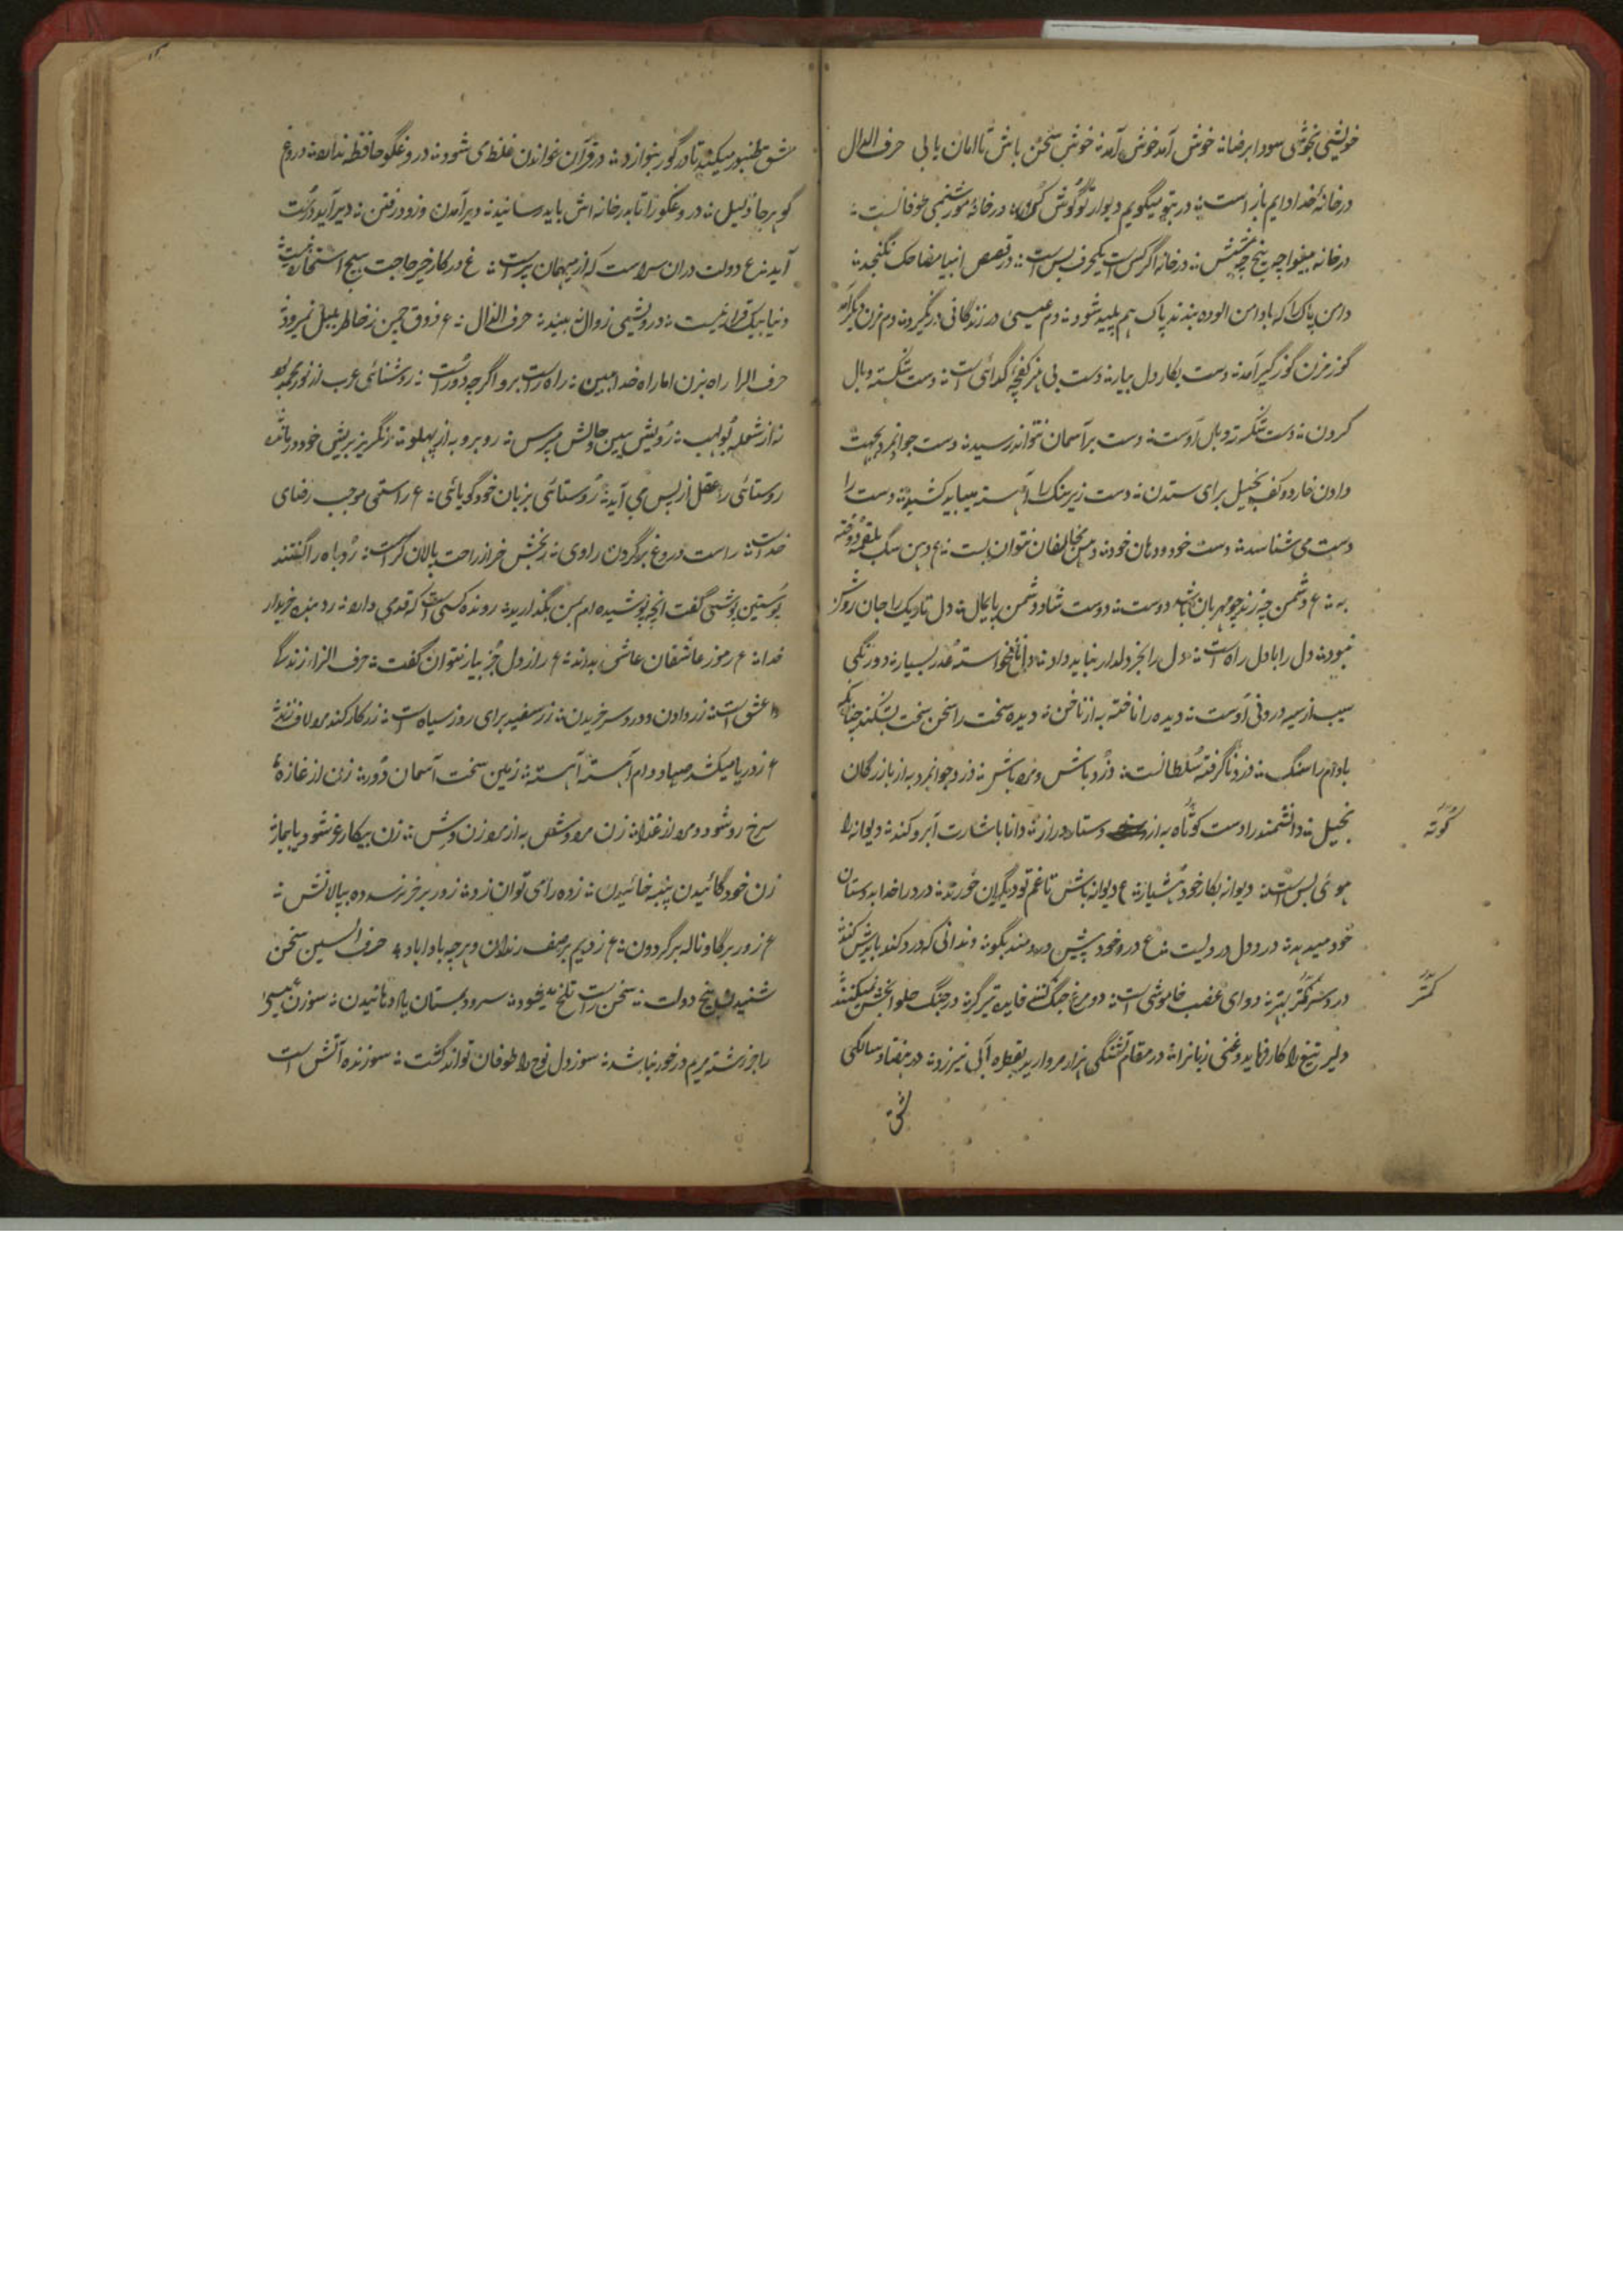 خویشی بخوشی سودا برضا ۞ خوش آمد خوش آمد ۞ خوش سخن باش تا امان یابی حرف الدال
در خانهٔ خدا دایم باز است ۞ در بتو میگویم دیوار تو گوش کن ۞ در خانهٔ مور شبنمی طوفانست ۞
در خانه اگر کس است یکحرف بس است ۞ در قصص انبیا مضاحک نگنجد ۞
دامن پاک را که با دامن الوده بندند پاک هم پلید شود ۞ دم عیسی در زندگانی در نگیرد ۞
گوز مزن گوز گیر آمد ۞ دست بکار دل بیار ۞ دست بی هنر کفچهٔ گدائی است ۞ دست شکسته وبال
گردن ۞ دست شکسته وبال اوست ۞ دست بر آسمان نتواند رسید ۞ دست جوانمرد بجهت
دادن خارد و کف بخیل برای ستدن ۞ دست زیر سنگ را آهسته میباید کشید ۞ دست را
دست می شناسد ۞ دست خود و دهان خود ۞ دهن مخالفان نتوان بست ۞ ع دهن سگ بلقمه دوخته
به ۞ ع دشمن چه زند چو مهربان باشد دوست ۞ دوست شاد و دشمن پایمال ۞ دل تاریک را جان روشن
نبود ۞ دل را بادل راه است ۞ دل را بجز دلدار نباید داد ۞ عذر بسیار ۞ دو رنگی
سیب از سیه درونی اوست ۞ دیده را نافته به از ناخن ۞ دیده سخت را سخن سخت بشکند چنانکه
بادام را سنگ ۞ دزد ناگرفته سلطانست ۞ دزد باش و مرد باش ۞ دزد جوانمرد به از بازرگان
بخیل ۞ دانشمند را دست کوتاه به از دستار دراز ۞ دانا باشارت ابرو کند ۞ دیوانه را
هوئی بس است ۞ دیوانه بکار خود هشیار ۞ ع دیوانه باش تا غم تو دیگران خورند ۞ درد را خدا بدوستان
خود میدهد ۞ درد دل درد لیست ۞ ع درد خود پیش دردمند بگو ۞ دندانی که درد کند بایدش کند ۞
درد سر کمتر بهتر ۞ دوای غضب خاموشی است ۞ دو مرغ جنگ کنند فایده تیر گر ۞ در جنگ حلوا بخش نمیکنند ۞
دلیر تیغ را کار فرماید و غنی زبانرا ۞ در مقام تشنگی هزار مروارید بقطره آبی نیرزد ۞ در هفتاد سالگی
مشق
کوته
کمتر
مشق طنبور میکند تا در گور بنوازد ۞ در قرآن خواندن غلطی شود ۞ دروغگو حافظه ندارد ۞ دروغ
گو هر جا ذلیل ۞ دروغگو را تا بدر خانه اش باید رسانید ۞ دیر آمدن و زود رفتن ۞ دیر آید درست
آید ۞ ع دولت دران سراست که از میهمان پر است ۞ ع در کار خیر حاجت هیچ استخاره نیست ۞
دنیا بیک قرار نیست ۞ درویشی زوال نبیند ۞ حرف الذال ۞ ع ذوق چمن ز خاطر بلبل نمیرود
حرف الرا راه بزن اما راه خدا ببین ۞ راه راست برو اگرچه دور است ۞ روشنائی عرب از نور محمد بود
نه از شعله بولهب ۞ رویش ببین حالش مپرس ۞ روبرو به از پهلو ۞ رنگریز بریش خود در مانده
روستائی را عقل از پس می آید ۞ روستائی بزبان خود گویائی ۞ ع راستی موجب رضای
خداست ۞ راست دروغ بر گردن راوی ۞ رنجش خر از راحت پالان گر است ۞ روباه را گفتند
پوستین پوشی گفت انچه پوشیده ام بمن بگذارید ۞ رونده کسی است که قدمی دارد ۞ رد بنده خریدار
خدا ۞ ع رموز عاشقان عاشق بداند ۞ ع راز دل جز بیار نتوان گفت ۞ حرف الزاء زندگی
عشق است ۞ زر دادن و درد سر خریدن ۞ زر سفید برای روز سیاه است ۞ زر کار کند مرد لاف زند ۞
ع ز دریا میکشد صیاد دام آهسته آهسته ۞ زمین سخت آسمان دور ۞ زن از غازه
سرخ رو شود و مرد از غذا ۞ زن مرد وش به از مرد زن وش ۞ زن بیکار غر شود یا بیمار
زن خود گائیدن پنبه خائیدن ۞ زده را می توان زد ۞ زور بر خر نرسد ده بپالانش ۞
ع زور بر گاو ناله بر گردون ۞ ع زدیم بر صف رندان و هر چه باداباد ۞ حرف السین سخن
شنیدن گنج دولت ۞ سخن راست تلخ میشود ۞ سرود بمستان یاد دهانیدن ۞ سوزن عیسی
را جز رشتهٔ مریم در خور نباشد ۞ سوز دل نوح را طوفان تواند گشت ۞ سوزنده آتش است